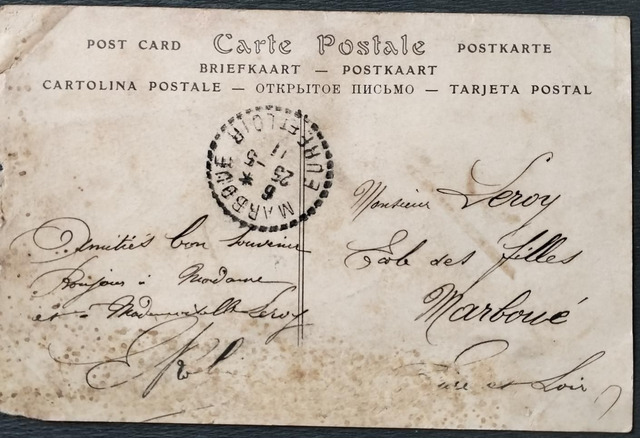 POST CARD Carte Postale POSTKARTE
BRIEFKAART — POSTKAART
CARTOLINA POSTALE — ОТКРЫТОЕ ПИСЬМО — TARJETA POSTAL
MARBOUÉ * EURE-ET-LOIR
6
25 -5
11
Monsieur Leroy
École des filles
Marboué
Eure et Loir
Amitiés bon souvenir
Bonjour à Madame
et à Mademoiselle Leroy